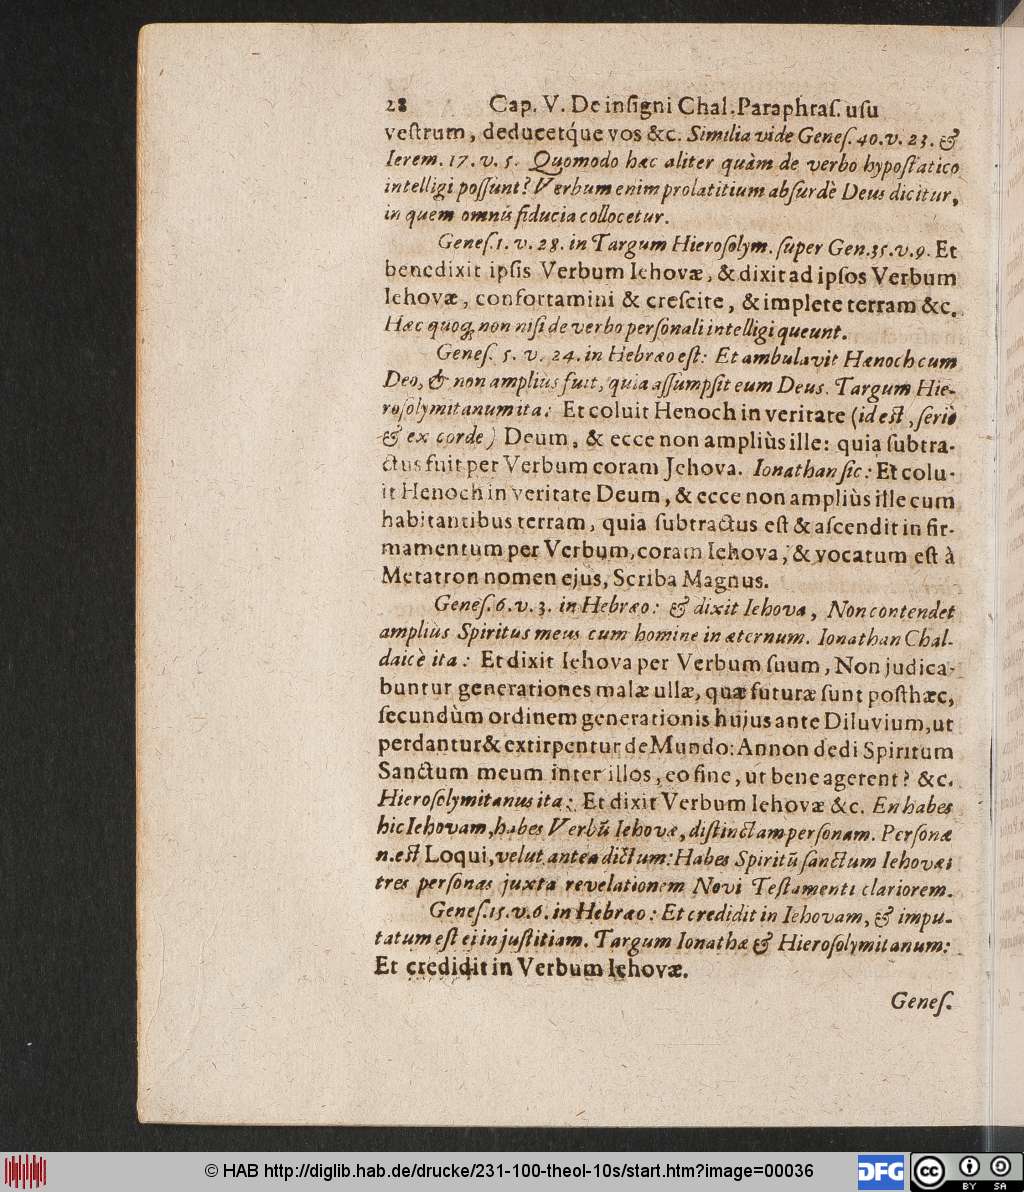 28 Cap. V. De inſigni Chal. Paraphraſ. uſu
veſtrum, deducetq́ue vos &c. Similia vide Geneſ. 40. v. 23. &
Ierem. 17. v. 5. Quomodo hæc aliter quàm de verbo hypoſtatico
intelligi poſſunt? Verbum enim prolatitium abſurdè Deus dicitur,
in quem omnis fiducia collocetur.
Geneſ. 1. v. 28. in Targum Hieroſolym. ſuper Gen. 35. v. 9. Et
benedixit ipſis Verbum Iehovæ, & dixit ad ipſos Verbum
Iehovæ, confortamini & creſcite, & implete terram &c.
Hæc quoq́; non niſi de verbo perſonali intelligi queunt.
Geneſ. 5. v. 24. in Hebræo eſt: Et ambulavit Hænoch cum
Deo, & non ampliùs fuit, quia aſſumpſit eum Deus. Targum Hie-
roſolymitanum ita: Et coluit Henoch in veritate (id eſt, ſeriò
& ex corde) Deum, & ecce non ampliùs ille: quia ſubtra-
ctus fuit per Verbum coram Jehova. Ionathan ſic: Et colu-
it Henoch in veritate Deum, & ecce non ampliùs ille cum
habitantibus terram, quia ſubtractus eſt & aſcendit in fir-
mamentum per Verbum, coram Iehova, & vocatum eſt à
Metatron nomen ejus, Scriba Magnus.
Geneſ. 6. v. 3. in Hebræo: & dixit Iehova, Non contendet
ampliùs Spiritus meus cum homine in æternum. Ionathan Chal-
daicè ita: Et dixit Iehova per Verbum ſuum, Non judica-
buntur generationes malæ ullæ, quæ futuræ ſunt poſthæc,
ſecundùm ordinem generationis hujus ante Diluvium, ut
perdantur & extirpentur de Mundo: Annon dedi Spiritum
Sanctum meum inter illos, eo fine, ut bene agerent? &c.
Hieroſolymitanus ita: Et dixit Verbum Iehovæ &c. En habes
hic Iehovam, habes Verbũ Iehovæ, diſtinctam perſonam. Perſonæ
n. eſt Loqui, velut antea dictum: Habes Spiritũ ſanctum Iehovæ:
tres perſonas juxta revelationem Novi Teſtamenti clariorem.
Geneſ. 15. v. 6. in Hebræo: Et credidit in Iehovam, & impu-
tatum eſt ei in juſtitiam. Targum Ionathæ & Hieroſolymitanum:
Et credidit in Verbum Iehovæ.
Geneſ.
© HAB http://diglib.hab.de/drucke/231-100-theol-10s/start.htm?image=00036
DFG
cc BY SA